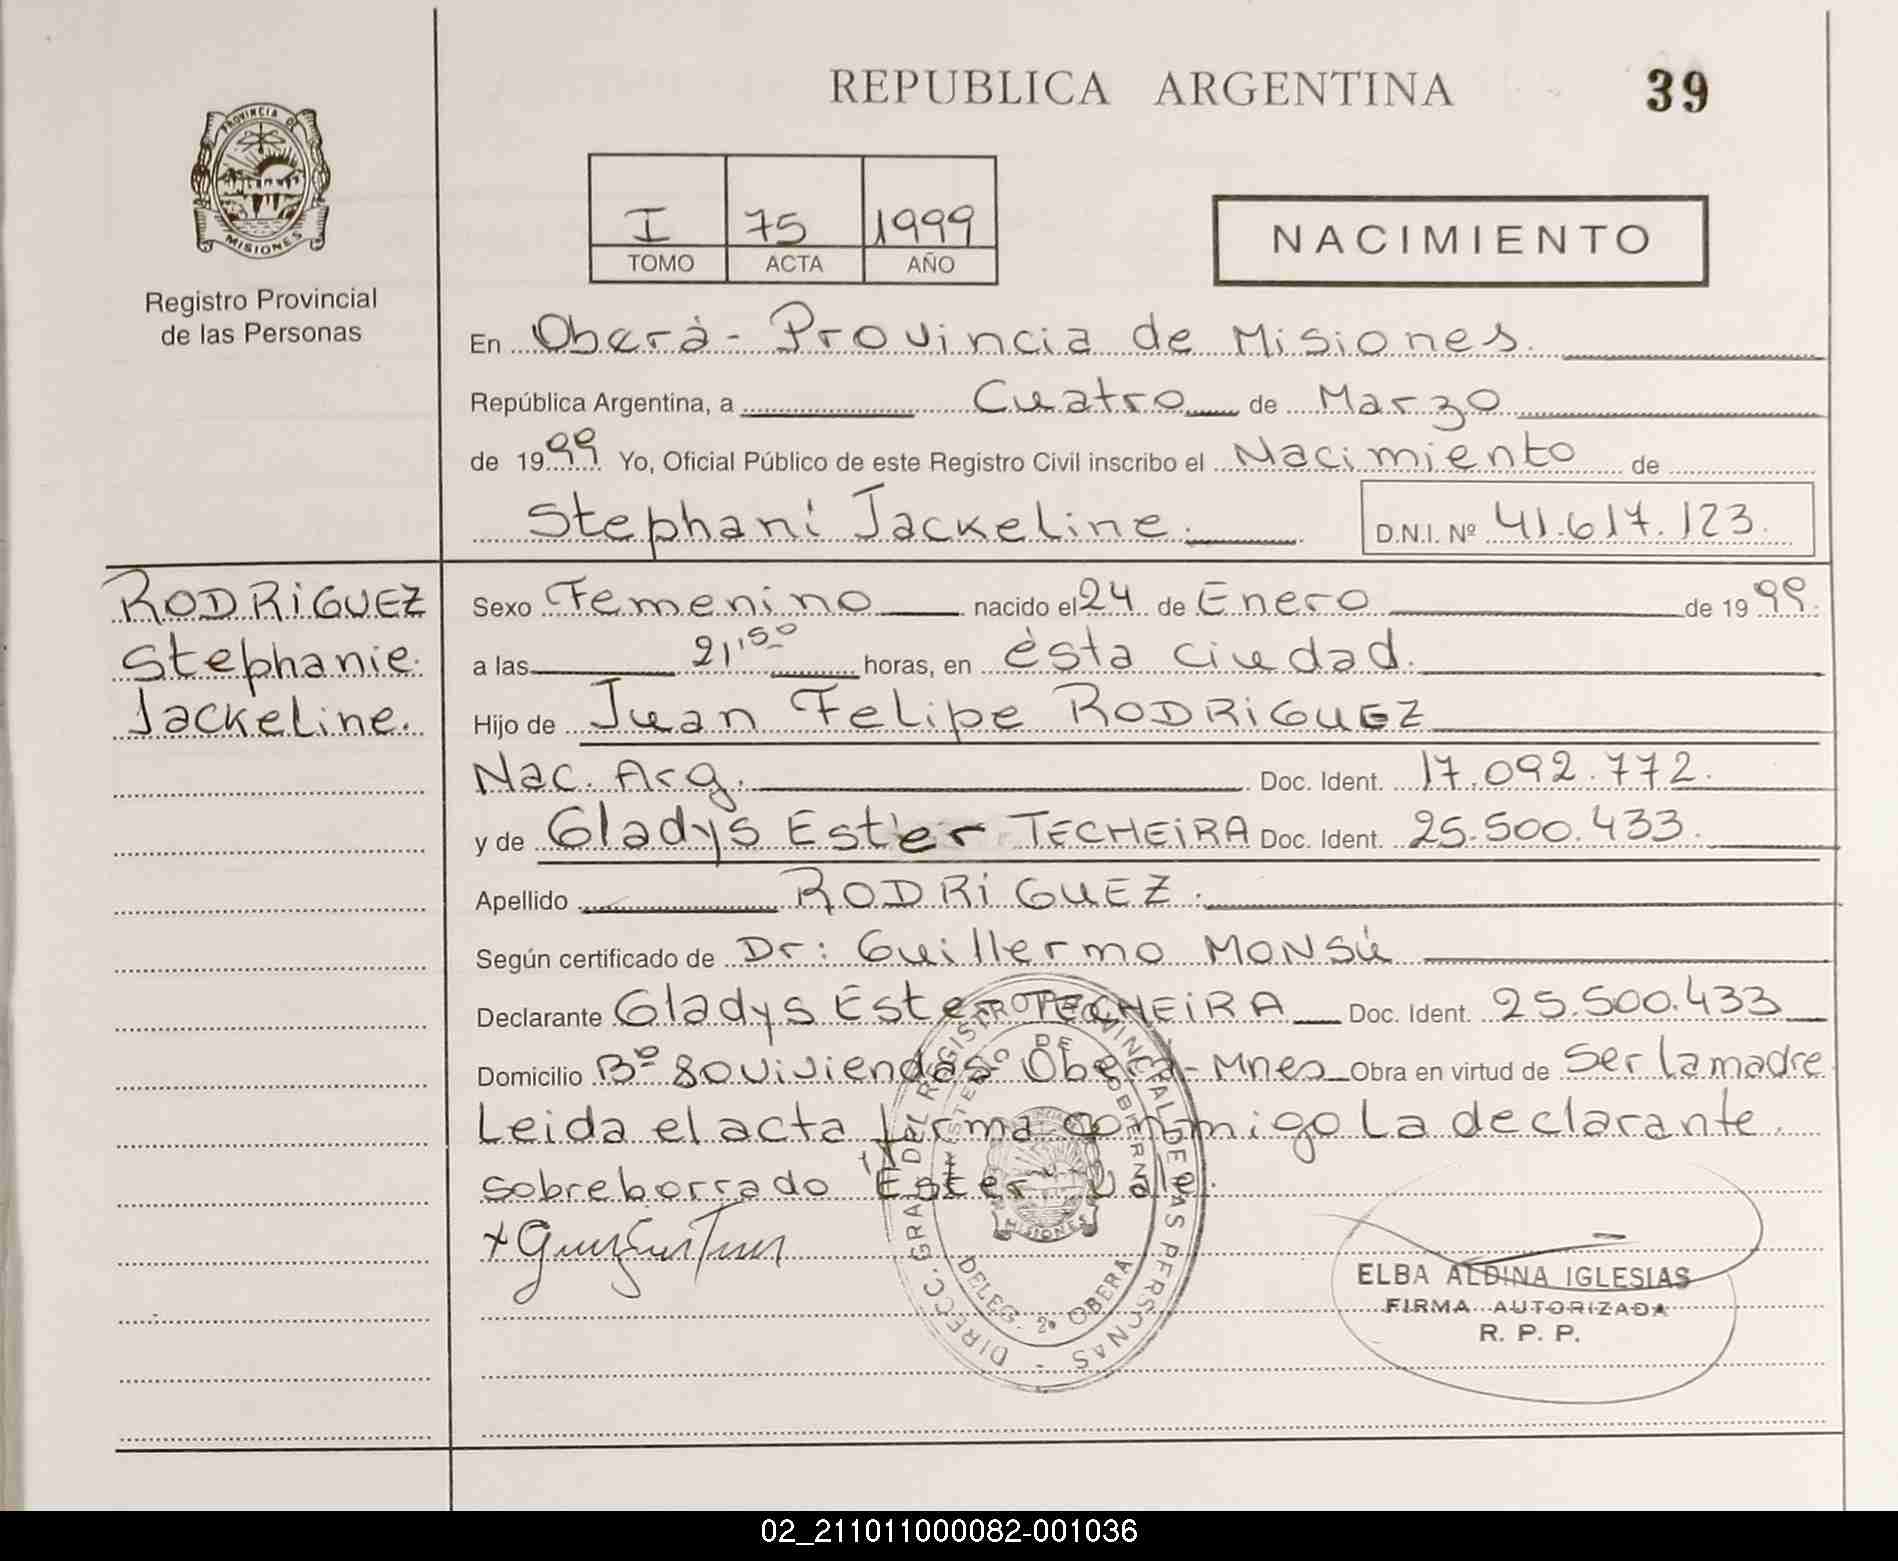 REPUBLICA ARGENTINA
39
PROVINCIA DE
MISIONES
Registro Provincial
de las Personas
I 75 1999
TOMO ACTA AÑO
NACIMIENTO
En Oberá - Provincia de Misiones.
República Argentina, a Cuatro de Marzo
de 1999 Yo, Oficial Público de este Registro Civil inscribo el Nacimiento de
Stephani Jackeline. D.N.I. Nº 41.617.123.
RODRIGUEZ
Stephanie
Jackeline.
Sexo Femenino nacido el 24 de Enero de 1999.
a las 21,50 horas, en ésta ciudad.
Hijo de Juan Felipe RODRIGUEZ
Nac. Arg. Doc. Ident. 17.092.772.
y de Gladys Ester TECHEIRA Doc. Ident. 25.500.433.
Apellido RODRIGUEZ.
Según certificado de Dr: Guillermo MONSÚ
Declarante Gladys Ester TECHEIRA Doc. Ident. 25.500.433
Domicilio Bº 80 viviendas Oberá - Mnes Obra en virtud de Ser la madre
Leida el acta firma conmigo La declarante.
sobreborrado "Ester" Vale.
DIRECC. GRAL. DEL REGISTRO PROVINCIAL DE LAS PERSONAS
MINISTERIO DE GOBIERNO
MISIONES
DELEG. 2ª OBERA
ELBA ALDINA IGLESIAS
FIRMA AUTORIZADA
R. P. P.
02_211011000082-001036